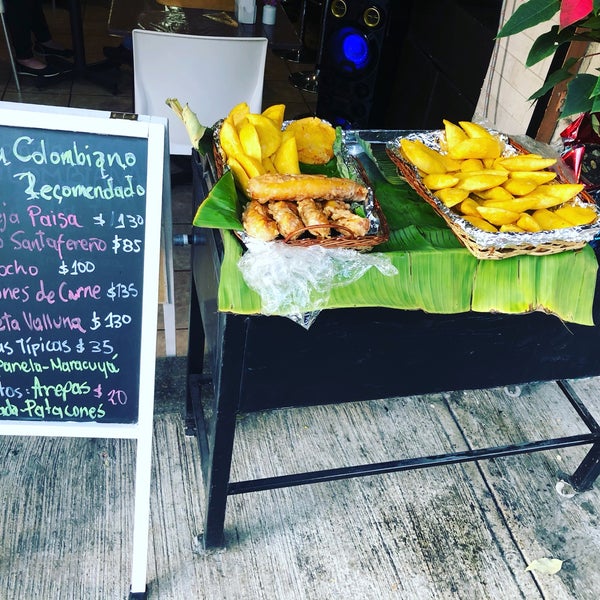 Colombiano
Recomendado
Paisa $130
Santafereño $85
$100
de Carne $135
Valluna $130
Típicas $35
Panela-Maracuyá
Arepas $20
Patacones